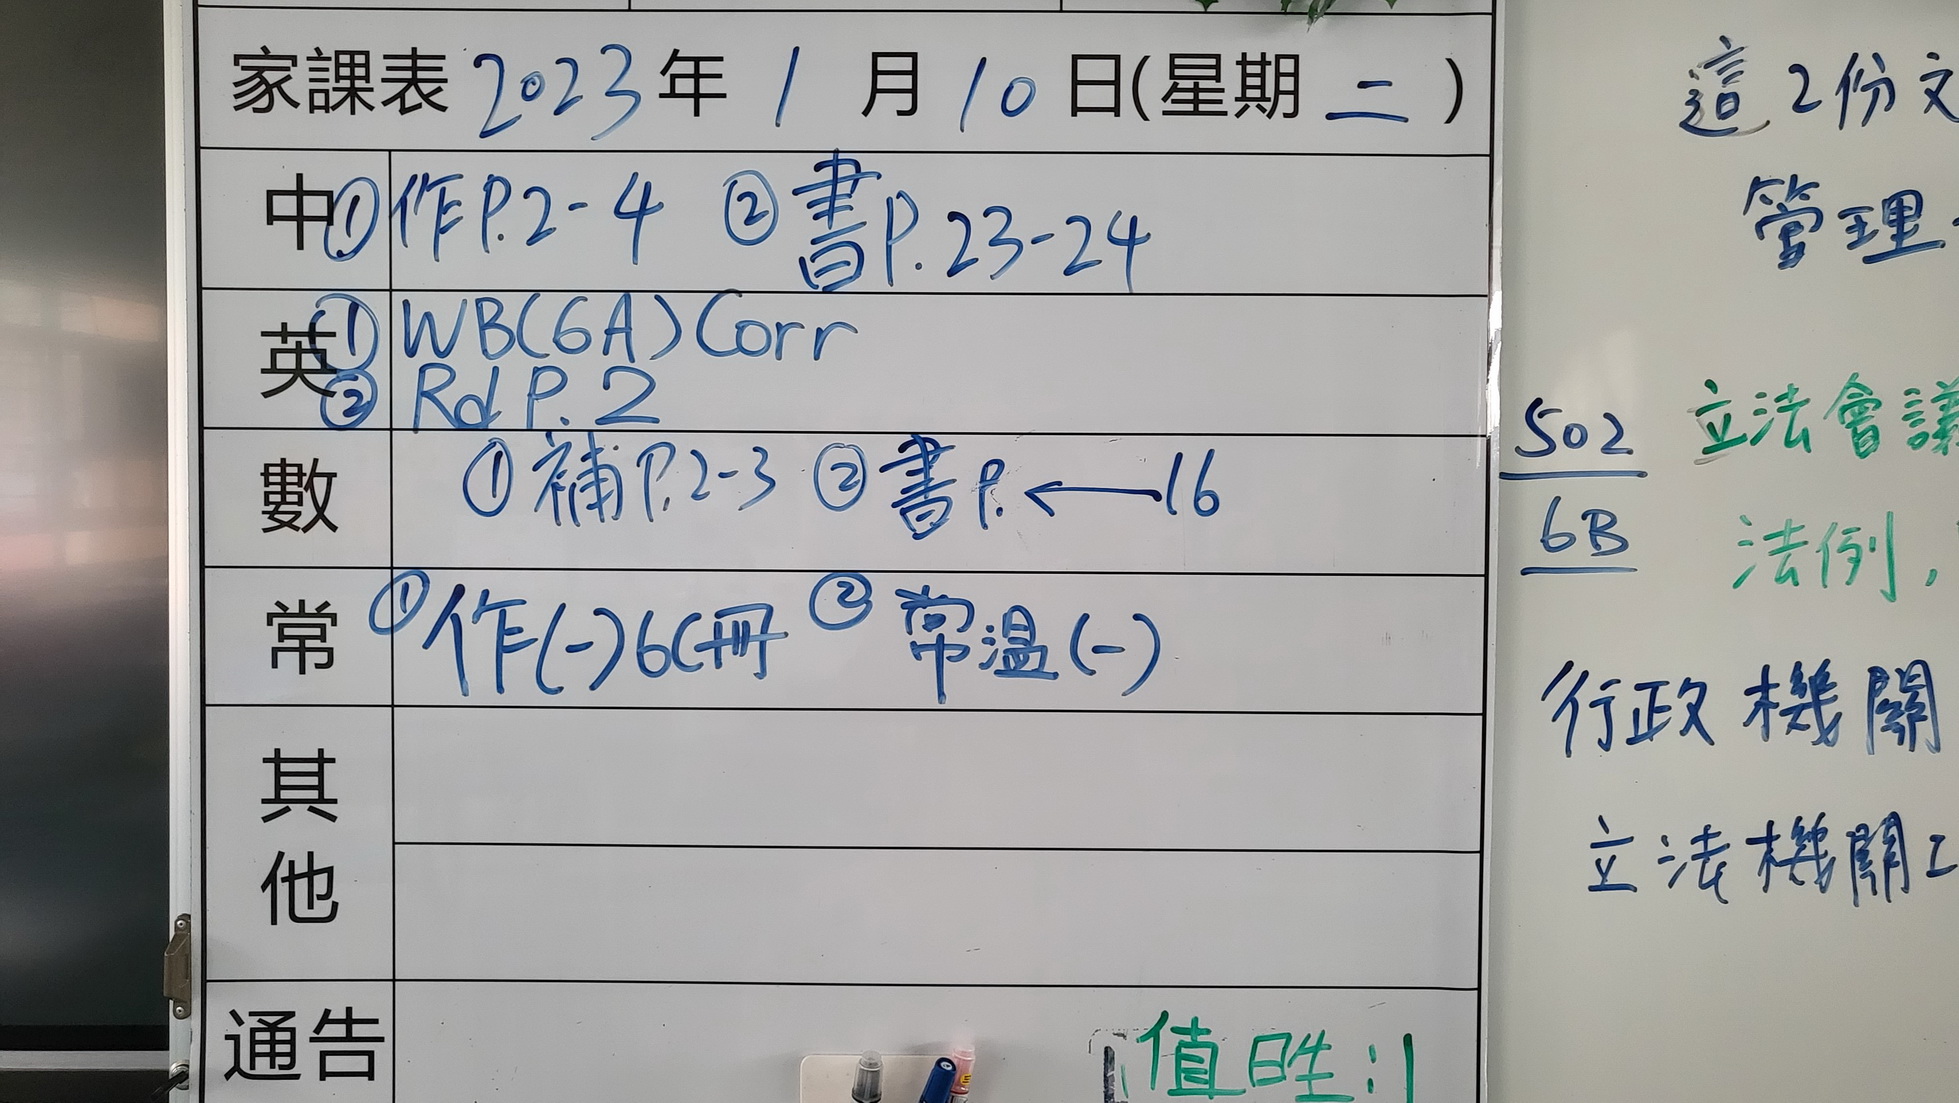 家課表 2023年 1月10日(星期二)
中 ①作P.2-4 ②書P.23-24
英 ①WB(6A)Corr
②Rd P.2
數 ①補P.2-3 ②書P.←16
常 ①作(一)6C冊 ②常溫(一)
其他
通告
值日生:1
這2份文
管理
502
6B
立法會議
法例,
行政機關
立法機關